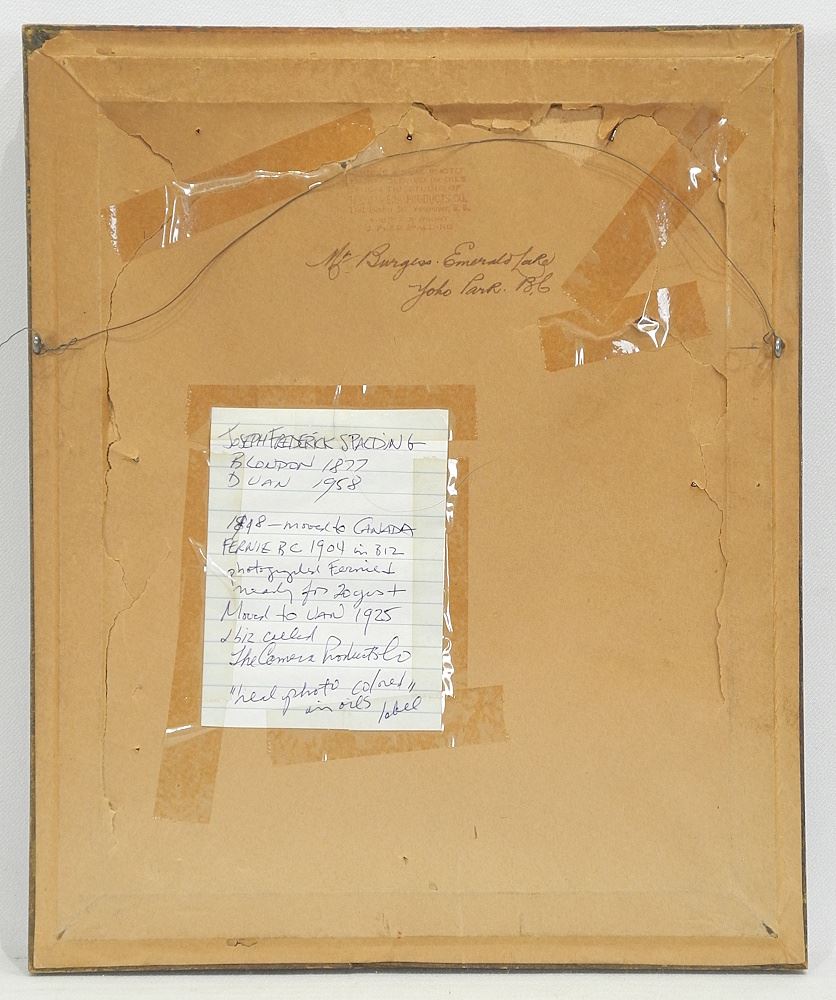 PRODUCTS CO.
J. FRED SPALDING
Mt. Burgess. Emerald Lake
Yoho Park. B.C
JOSEPH FREDERICK SPALDING
B LONDON 1877
D VAN 1958
1898 - moved to CANADA
FERNIE BC 1904 in BIZ
photographed Fernie +
nearby for 20 yrs +
Moved to VAN 1925
+ biz called
The Camera Products Co
"real photo colored"
in oils label